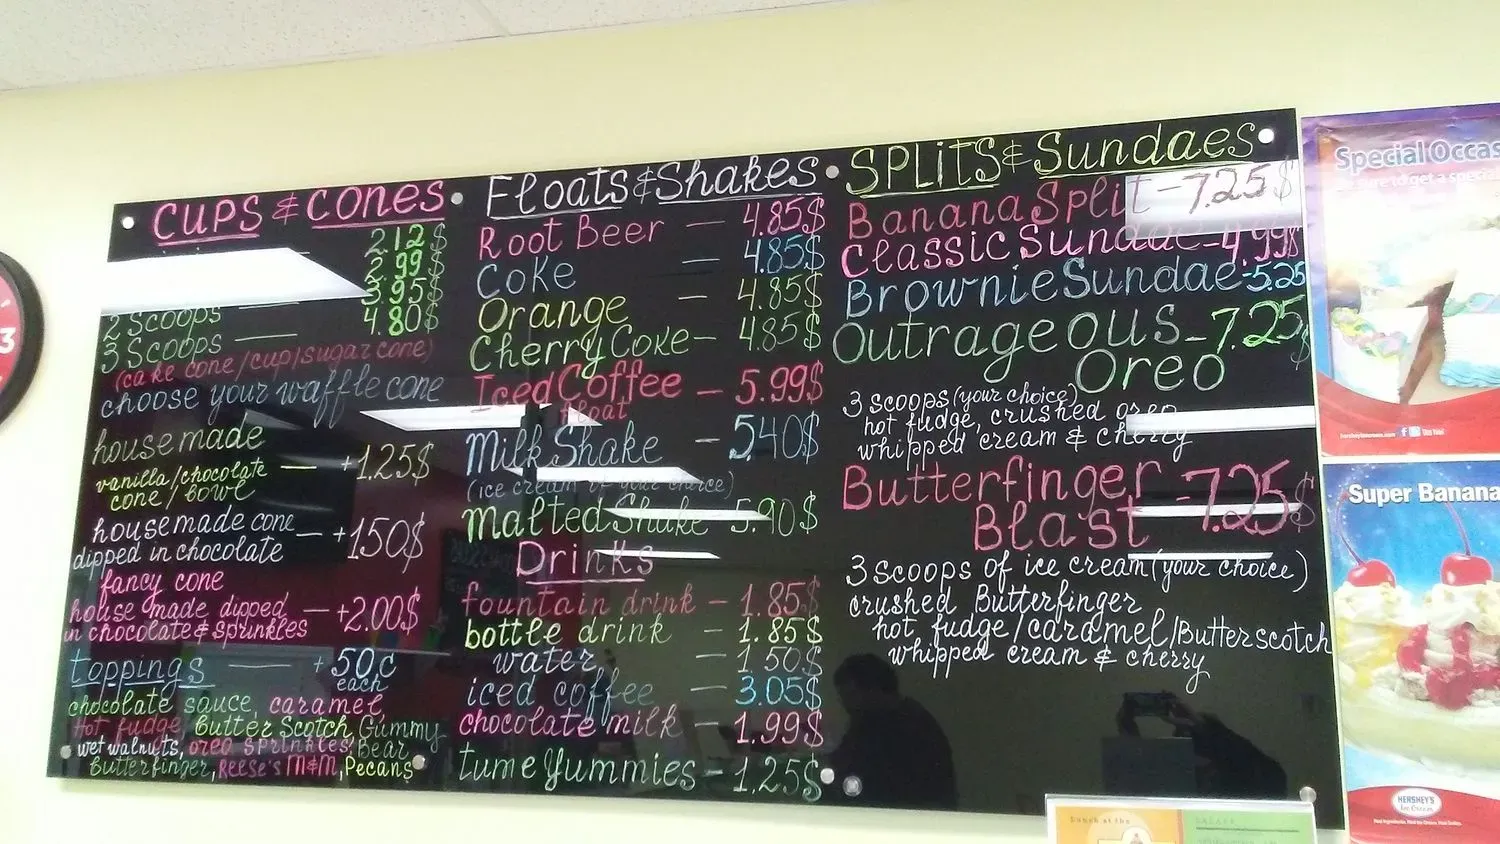 CUPS & CONES
2.12$
2.99$
3.95$
2 Scoops
4.80$
3 Scoops
(cake cone/cup/sugar cone)
choose your waffle cone
house made
vanilla/chocolate — +1.25$
cone/bowl
housemade cone — +1.50$
dipped in chocolate
fancy cone
house made dipped — +2.00$
in chocolate & sprinkles
toppings — +50¢
each
chocolate sauce, caramel
Hot fudge, Butter Scotch, Gummy
wet walnuts, oreo sprinkles, Bear
Butterfinger, Reese's M&M, Pecans
Floats & Shakes
Root Beer — 4.85$
Coke — 4.85$
Orange — 4.85$
Cherry Coke — 4.85$
Iced Coffee — 5.99$
float
Milk Shake — 5.40$
(ice cream of your choice)
Malted Shake 5.90$
Drinks
fountain drink — 1.85$
bottle drink — 1.85$
water — 1.50$
iced coffee — 3.05$
chocolate milk — 1.99$
tume Yummies — 1.25$
SPLitS & Sundaes
Banana Split — 7.25$
Classic Sundae — 4.99$
Brownie Sundae - 5.25
Outrageous — 7.25$
Oreo
3 scoops (your choice)
hot fudge, crushed oreo
whipped cream & cherry
Butterfinger - 7.25$
Blast
3 scoops of ice cream (your choice)
crushed Butterfinger
hot fudge/caramel/Butterscotch
whipped cream & cherry
Special Occas
Super Banana
HERSHEY'S
Ice Cream
3